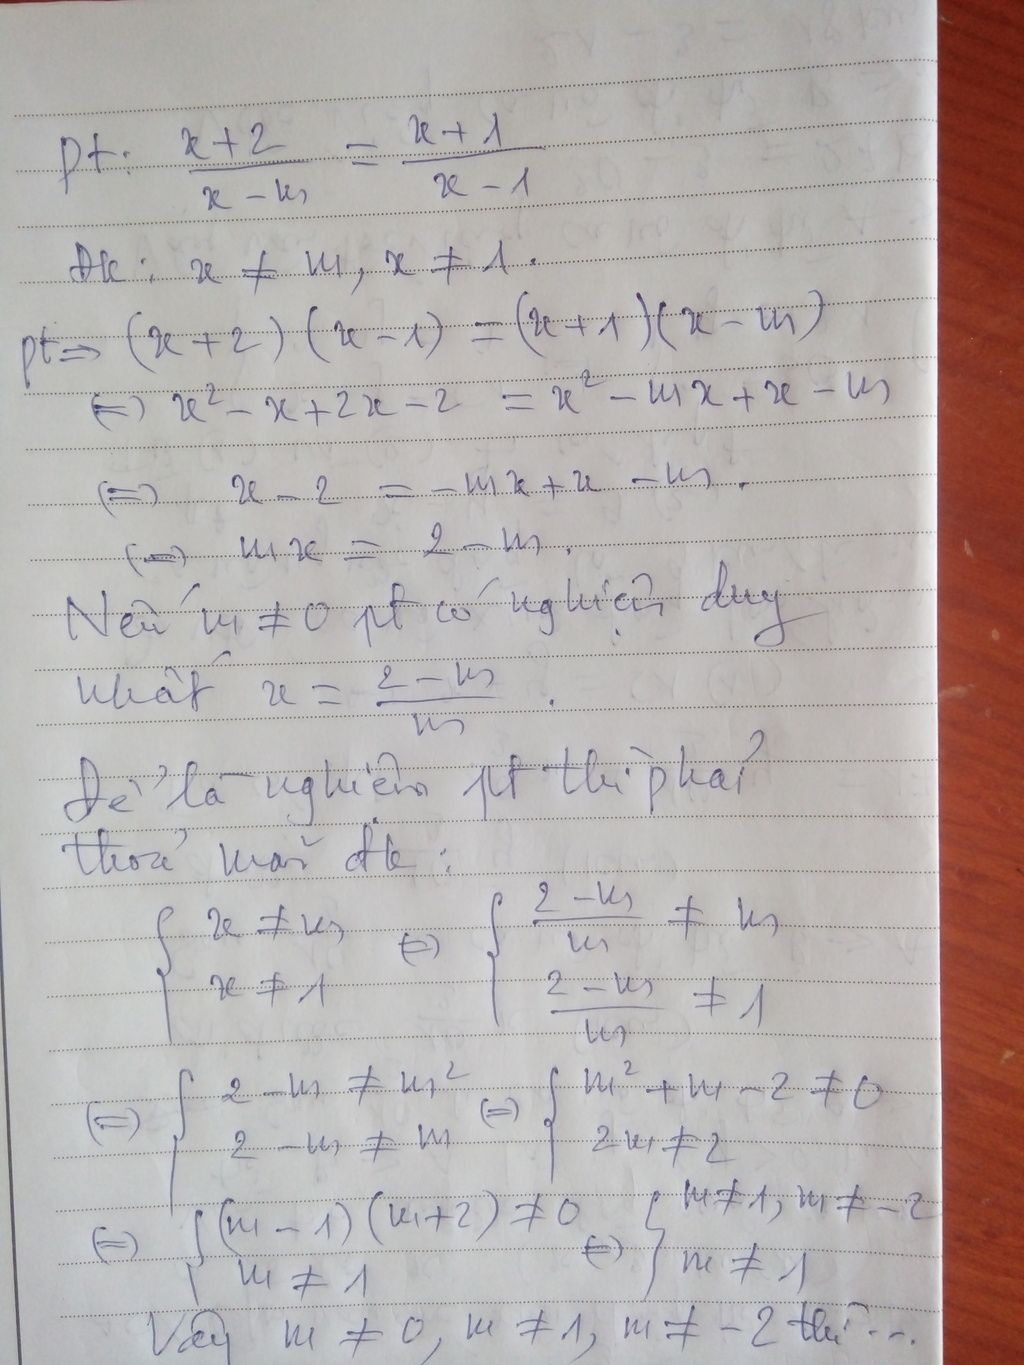 pt: (x+2)/(x-m) = (x+1)/(x-1)
đk: x ≠ m, x ≠ 1.
pt => (x+2)(x-1) = (x+1)(x-m)
<=> x² - x + 2x - 2 = x² - mx + x - m
<=> x - 2 = -mx + x - m.
<=> mx = 2 - m.
Nếu m ≠ 0 pt có nghiệm duy
nhất x = (2-m)/m.
Để là nghiệm pt thì phải
thoả mãn đk:
{ x ≠ m <=> { (2-m)/m ≠ m
x ≠ 1 (2-m)/m ≠ 1
<=> { 2 - m ≠ m² <=> { m² + m - 2 ≠ 0
2 - m ≠ m 2m ≠ 2
<=> { (m-1)(m+2) ≠ 0 <=> { m ≠ 1, m ≠ -2
m ≠ 1 m ≠ 1
Vậy m ≠ 0, m ≠ 1, m ≠ -2 thì ...